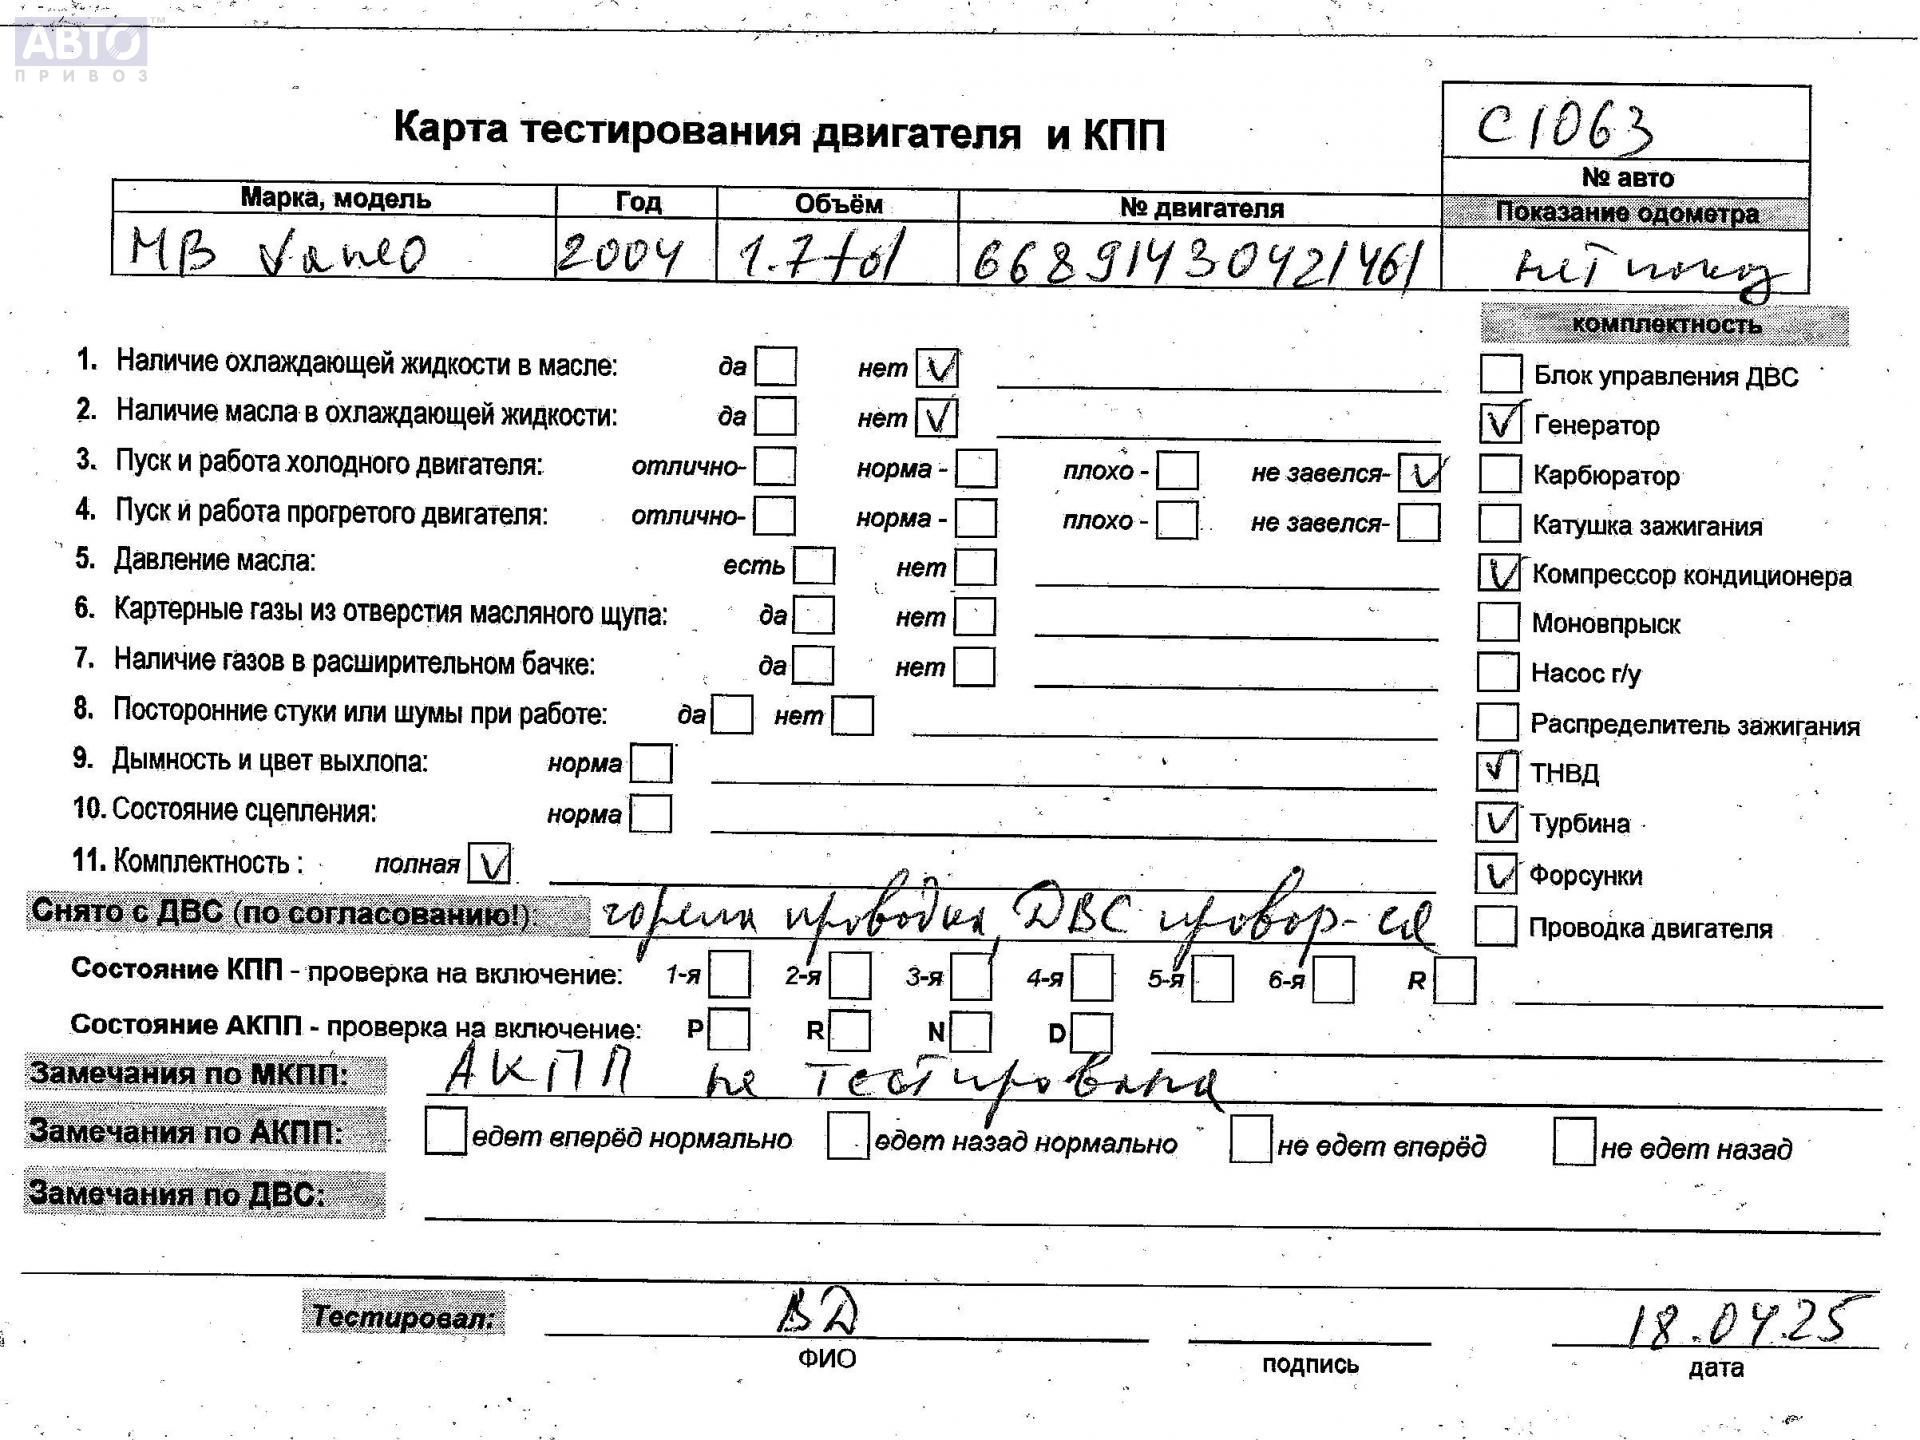 АВТО™
ПРИВОЗ
Карта тестирования двигателя и КПП
С1063
№ авто
Марка, модель Год Объём № двигателя Показание одометра
МВ Vaneo 2004 1.7 66891430421461 нет показ
комплектность
1. Наличие охлаждающей жидкости в масле: да нет V Блок управления ДВС
2. Наличие масла в охлаждающей жидкости: да нет V V Генератор
3. Пуск и работа холодного двигателя: отлично- норма - плохо - не завелся- V Карбюратор
4. Пуск и работа прогретого двигателя: отлично- норма - плохо - не завелся- Катушка зажигания
5. Давление масла: есть нет V Компрессор кондиционера
6. Картерные газы из отверстия масляного щупа: да нет Моновпрыск
7. Наличие газов в расширительном бачке: да нет Насос г/у
8. Посторонние стуки или шумы при работе: да нет Распределитель зажигания
9. Дымность и цвет выхлопа: норма V ТНВД
10. Состояние сцепления: норма V Турбина
11. Комплектность : полная V V Форсунки
Снято с ДВС (по согласованию!): горела проводка, ДВС провор-ся Проводка двигателя
Состояние КПП - проверка на включение: 1-я 2-я 3-я 4-я 5-я 6-я R
Состояние АКПП - проверка на включение: P R N D
Замечания по МКПП: АКПП не тестирована
Замечания по АКПП: едет вперёд нормально едет назад нормально не едет вперёд не едет назад
Замечания по ДВС:
Тестировал: ВД 18.04.25
ФИО подпись дата